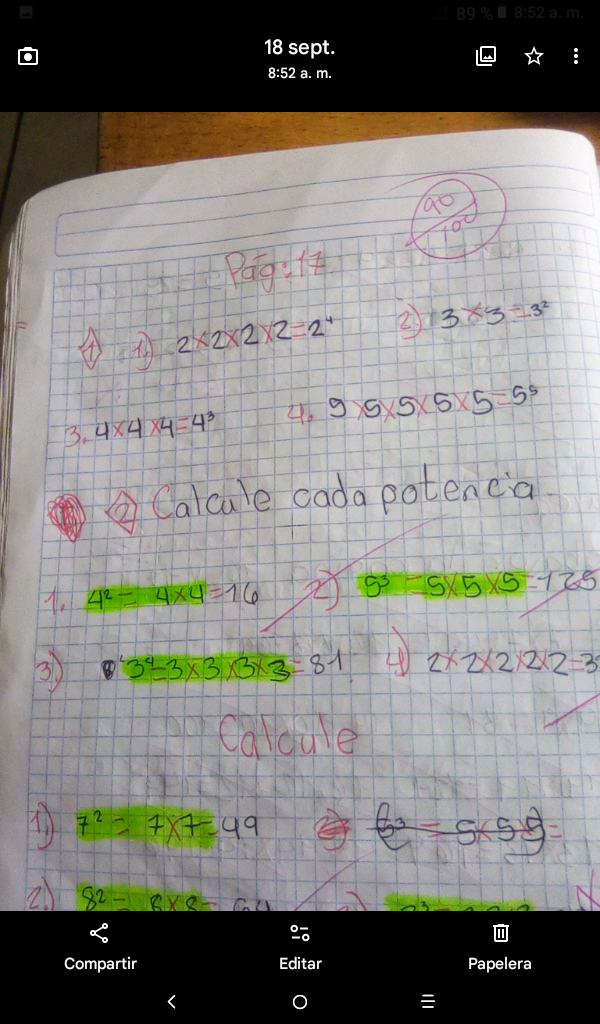 89 % 8:52 a. m.
18 sept.
8:52 a. m.
90/100
Pág:17
1 1) 2×2×2×2=2⁴ 2) 3×3=3²
3. 4×4×4=4³ 4. 9×5×5×5×5=5⁵
2 Calcule cada potencia
1. 4²= 4×4=16 2) 5³ =5×5×5=125
3) 3⁴=3×3×3×3=81 4) 2×2×2×2×2=3
Calcule
1) 7²= 7×7=49
2.) 8²= 8×8= 64
Compartir Editar Papelera